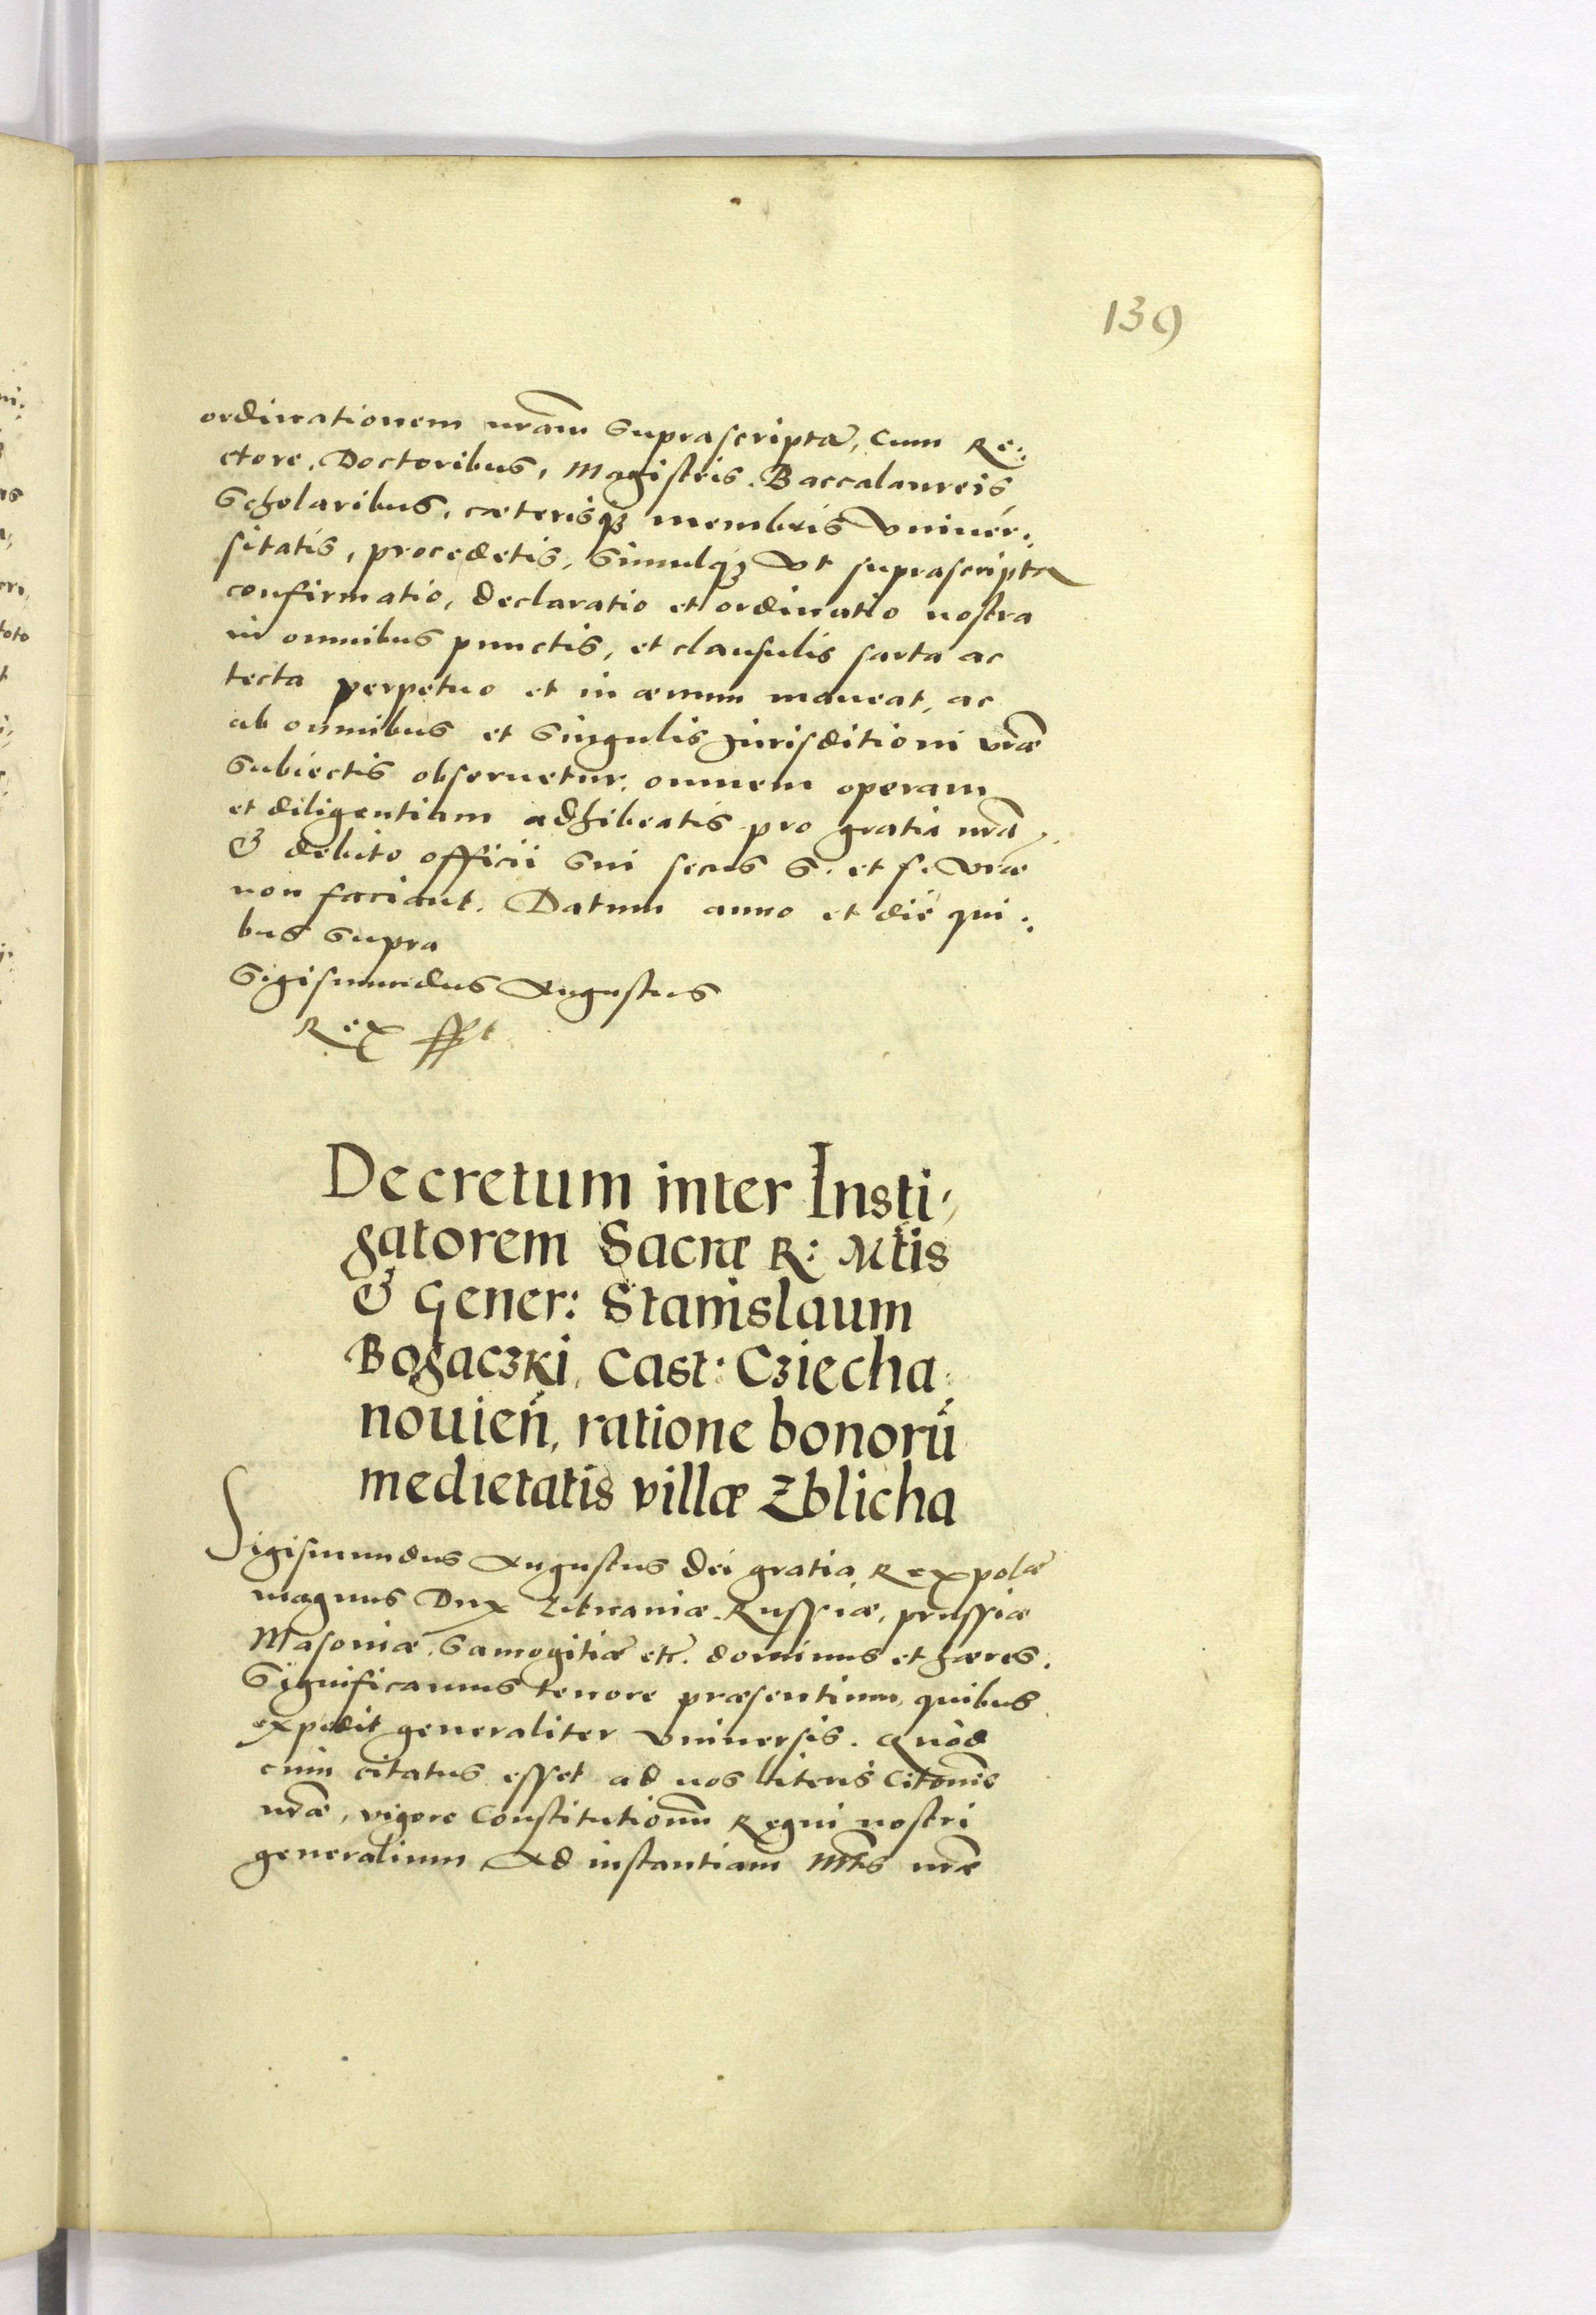 139
ordinationem nram̃ suprascriptã, cum Re:
ctore, Doctoribus, Magistris, Baccalaureis
Scholaribus, cæterisq3 membris Vniuer:
sitatis, procedetis, Simulq3 Vt suprascripta
confirmatio, declaratio et ordinatio nostra
in omnibus punctis, et clausulis sarta ac
tecta perpetuo et in æuum maneat, ac
ab omnibus et singulis Jurisditioni vræ̃
Subiectis obseruetur, omnem operam
et diligentiam adhibeatis pro gratia nrã,
& debito officii sui secus S. et f. Vræ
non faciant. Datum anno et die qui:
bus supra
Sigismundus Augustus
Rex sst
Decretum inter Insti,
gatorem Sacræ R: Mtis
& Gener: Stanislaum
Bogaczki, Cast: Cziecha:
nouień, ratione bonorũ
medietatis villæ Zblicha
Sigismundus Augustus Dei gratia Rex polæ̃
magnus Dux Lituaniæ, Russiæ, prussiæ
Masoniæ, Samogitiæ etc̃. dominus et hæres.
Significamus tenore præsentium, quibus
expedit generaliter Vniuersis. Quod
cum citatus esset ad nos literis Citonis̃
nræ̃, vigore Constitutionũ Regni nostri
generalium, Ad instantiam Mt̃s nræ̃